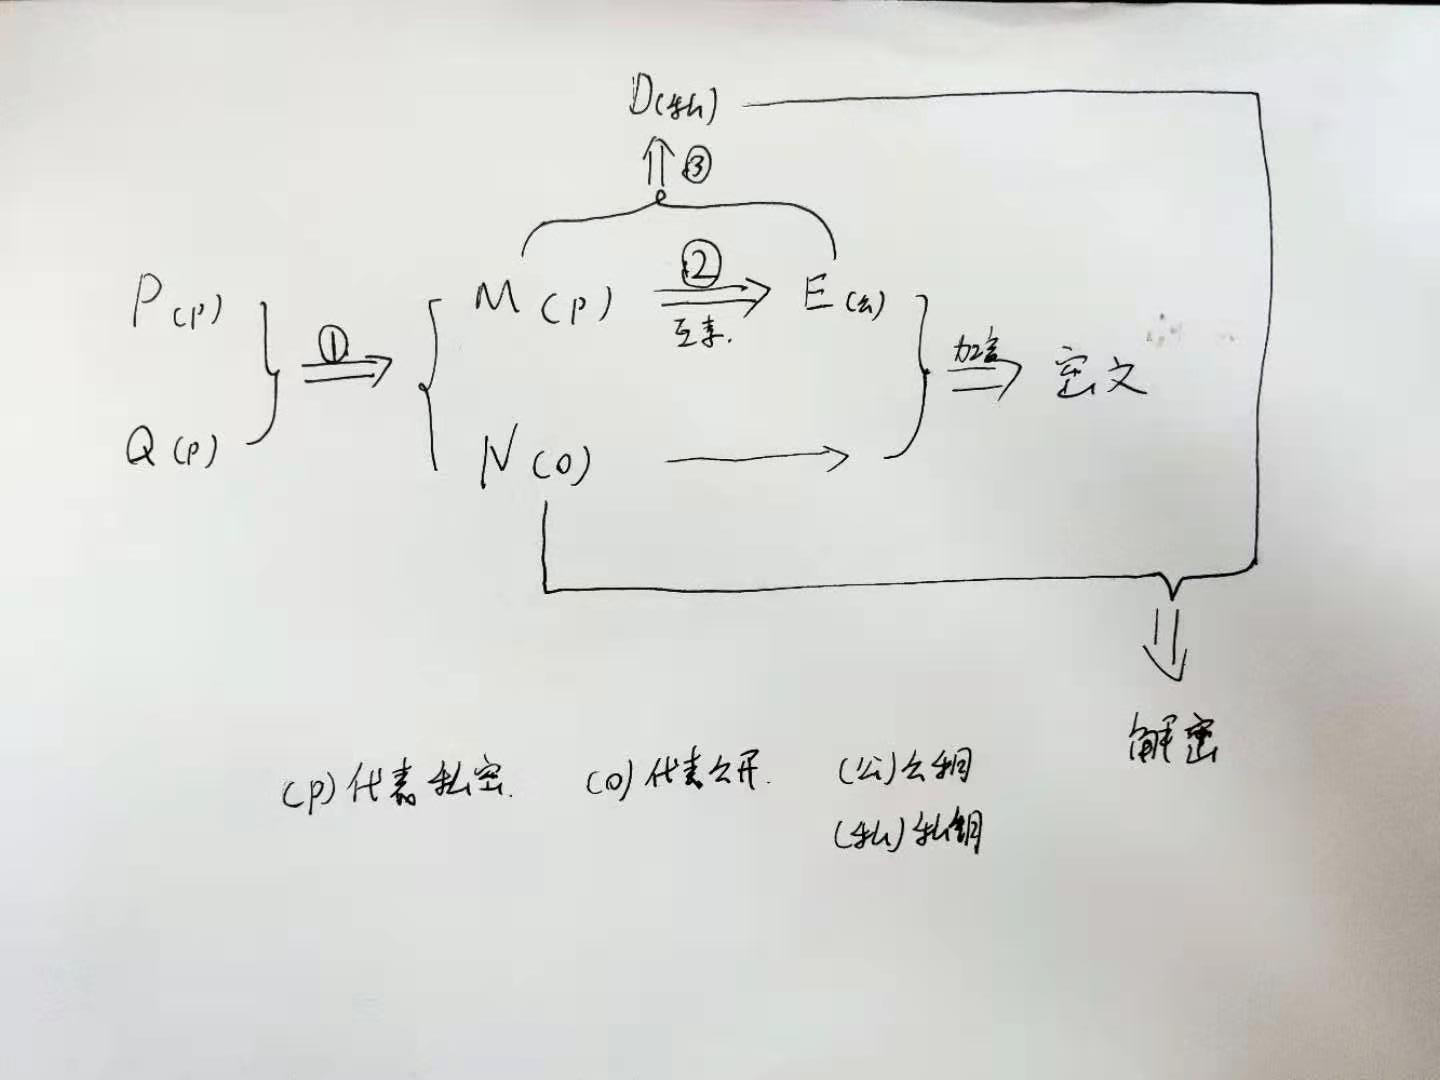 D(私)
③
P(P)
M(P)
②
互素.
E(公)
①
加密
密文
Q(P)
N(O)
解密
(P)代表私密.
(O)代表公开.
(公)公钥
(私)私钥